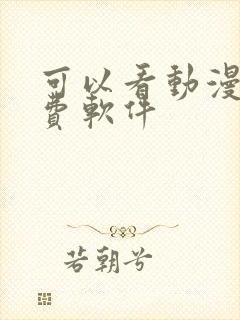 可以看動漫
費軟件
若朝兮